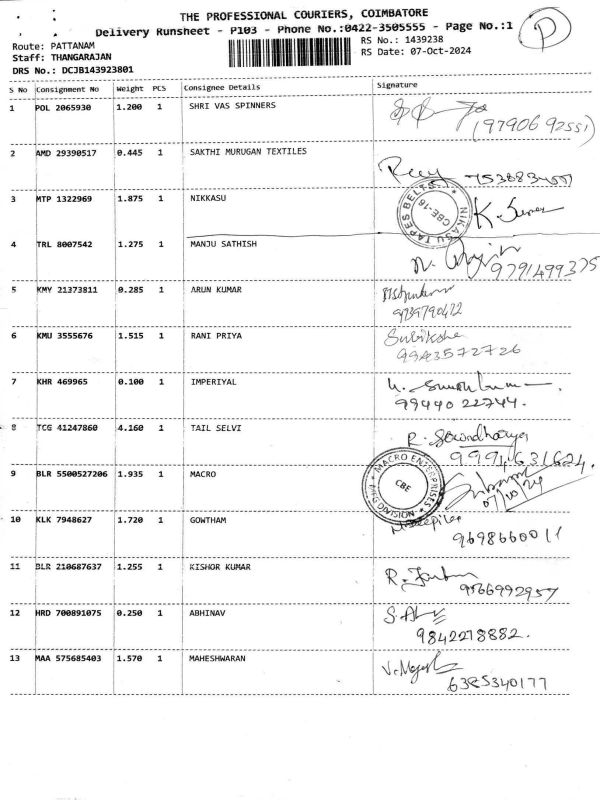 THE PROFESSIONAL COURIERS, COIMBATORE
Delivery Runsheet - P103 - Phone No.:0422-3505555 - Page No.:1
P
Route: PATTANAM
RS No.: 1439238
Staff: THANGARAJAN
RS Date: 07-Oct-2024
DRS No.: DCJB143923801
S No Consignment No Weight PCS Consignee Details Signature
1 POL 2065930 1.200 1 SHRI VAS SPINNERS
(9790692551)
2 AMD 29390517 0.445 1 SAKTHI MURUGAN TEXTILES
3 MTP 1322969 1.875 1 NIKKASU
NIKASU TAPES BELTS CBE-16
K. Suresh
4 TRL 8007542 1.275 1 MANJU SATHISH
9791499375
5 KMY 21373811 0.285 1 ARUN KUMAR
6 KMU 3555676 1.515 1 RANI PRIYA
Subiksha
9943572726
7 KHR 469965 0.100 1 IMPERIYAL
9944022744.
8 TCG 41247860 4.160 1 TAIL SELVI
R. Sowndharya
9994631624.
9 BLR 5500527206 1.935 1 MACRO
MACRO ENTERPRISES MFG DIVISION CBE
07/10/24
10 KLK 7948627 1.720 1 GOWTHAM
9698660011
11 BLR 210687637 1.255 1 KISHOR KUMAR
9566992957
12 HRD 700891075 0.250 1 ABHINAV
9842218882.
13 MAA 575685403 1.570 1 MAHESHWARAN
6385340177